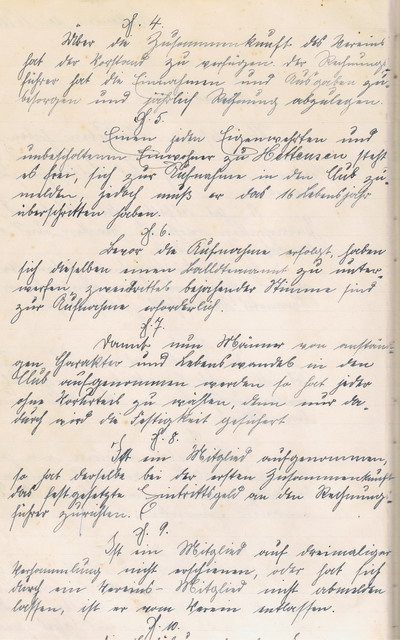 §. 4.
Über die Zusammenkunft des Vereins
hat der Vorstand zu verfügen. Der Rechnungs-
führer hat die Einnahmen und Ausgaben zu
besorgen und jährlich Rechnung abzulegen.
§. 5.
Einem jeden Eigenwehrten und
unbescholtenen Einwohner zu Hettensen steht
es frei, sich zur Aufnahme in den Club zu
melden, jedoch muß er das 16 Lebensjahr
überschritten haben.
§. 6.
Bevor die Aufnahme erfolgt, haben
sich dieselben einem zu unter-
werfen, zweidrittel bejahender Stimme sind
zur Aufnahme erforderlich.
§. 7.
Damit nun Männer von anständi-
gen Charakter und Lebenswandel in den
Club aufgenommen werden so hat jeder
ohne Vorurteil zu wählen, denn nur da-
durch wird die Festigkeit gesichert
§. 8.
Ist ein Mitglied aufgenommen,
so hat derselbe bei der ersten Zusammenkunft
das festgesetzte Eintrittsgeld an den Rechnungs-
führer zu zahlen.
§. 9.
Ist ein Mitglied auf dreimaliger
Versammlung nicht erschienen, oder hat sich
durch ein Vereins-Mitglied nicht abmelden
lassen, ist er vom Verein entlassen.
§. 10.